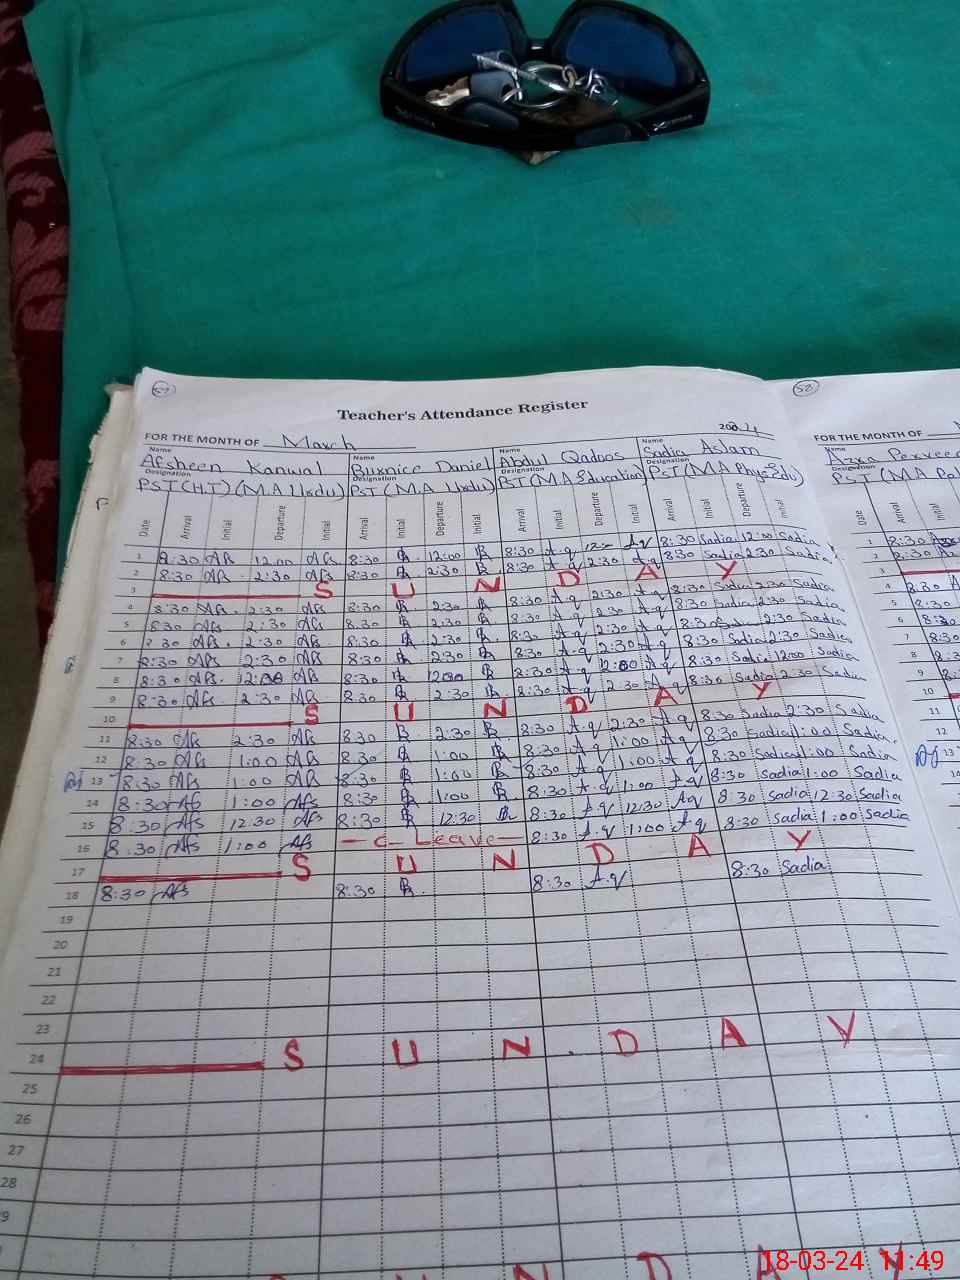 57
52
Teacher's Attendance Register
2024
FOR THE MONTH OF March
FOR THE MONTH OF
Name Name Name Name Name
Afsheen Kanwal Buxnice Daniel Abdul Qadoos Sadia Aslam
Designation Designation Designation Designation Designation
PST (H.T) (M.A Urdu) PST (M.A Urdu) PST (M.A Education) PST (M.A Phy-Edu) PST (M.A
Date Arrival Initial Departure Initial Arrival Initial Departure Initial Arrival Initial Departure Initial Arrival Initial Departure Initial Date Arrival Initial
1 8:30 Afs 12:00 Afs 8:30 B 12:00 B 8:30 A.q 12:00 A.q 8:30 Sadia 12:00 Sadia 1 8:30
2 8:30 Afs 2:30 Afs 8:30 B 2:30 B 8:30 A.q 2:30 A.q 8:30 Sadia 2:30 Sadia 2 8:30
3 S U N D A Y 3
4 8:30 Afs 2:30 Afs 8:30 B 2:30 B 8:30 A.q 2:30 A.q 8:30 Sadia 2:30 Sadia 4 8:30
5 8:30 Afs 2:30 Afs 8:30 B 2:30 B 8:30 A.q 2:30 A.q 8:30 Sadia 2:30 Sadia 5 8:30
6 8:30 Afs 2:30 Afs 8:30 B 2:30 B 8:30 A.q 2:30 A.q 8:30 Sadia 2:30 Sadia 6 8:30
7 8:30 Afs 2:30 Afs 8:30 B 2:30 B 8:30 A.q 2:30 A.q 8:30 Sadia 2:30 Sadia 7 8:30
8 8:30 Afs 12:00 Afs 8:30 B 12:00 B 8:30 A.q 12:00 A.q 8:30 Sadia 12:00 Sadia 8 8:3
9 8:30 Afs 2:30 Afs 8:30 B 2:30 B 8:30 A.q 2:30 A.q 8:30 Sadia 2:30 Sadia 9 8:
10 S U N D A Y 10
11 8:30 Afs 2:30 Afs 8:30 B 2:30 B 8:30 A.q 2:30 A.q 8:30 Sadia 2:30 Sadia 11
12 8:30 Afs 1:00 Afs 8:30 B 1:00 B 8:30 A.q 1:00 A.q 8:30 Sadia 1:00 Sadia 12
13 8:30 Afs 1:00 Afs 8:30 B 1:00 B 8:30 A.q 1:00 A.q 8:30 Sadia 1:00 Sadia 13
14 8:30 Afs 1:00 Afs 8:30 B 1:00 B 8:30 A.q 1:00 A.q 8:30 Sadia 1:00 Sadia 14
15 8:30 Afs 12:30 Afs 8:30 B 12:30 B 8:30 A.q 12:30 A.q 8:30 Sadia 12:30 Sadia
16 8:30 Afs 1:00 Afs C Leave 8:30 A.q 1:00 A.q 8:30 Sadia 1:00 Sadia
17 S U N D A Y
18 8:30 Afs 8:30 B 8:30 A.q 8:30 Sadia
19
20
21
22
23
24 S U N D A Y
25
26
27
28
9
N D A Y
18-03-24 11:49